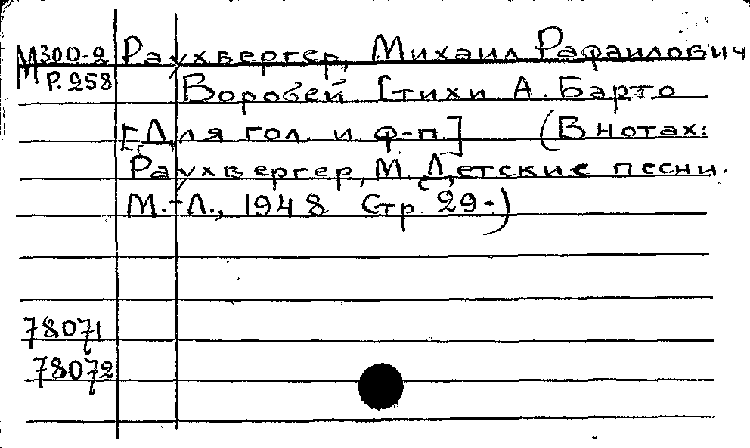 М300-2 Раухвергер, Михаил Рафаилович
Р.258 Воробей Стихи А. Барто
[Для гол. и ф-п.] (В нотах:
Раухвергер, М. Детские песни.
М.-Л., 1948 Стр. 29.)
78071
78072